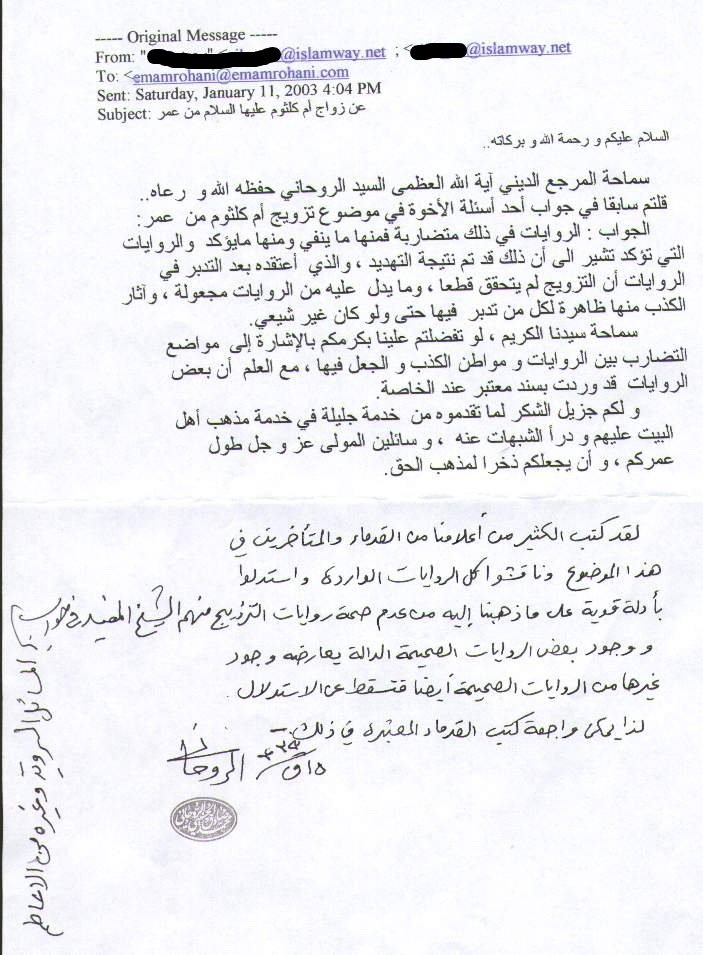 ----- Original Message -----
From: " @islamway.net ; < @islamway.net
To: <emamrohani@emamrohani.com
Sent: Saturday, January 11, 2003 4:04 PM
Subject: عن زواج أم كلثوم عليها السلام من عمر
السلام عليكم و رحمة الله و بركاته..
سماحة المرجع الديني آية الله العظمى السيد الروحاني حفظه الله و رعاه..
قلتم سابقا في جواب أحد أسئلة الأخوة في موضوع تزويج أم كلثوم من عمر:
الجواب : الروايات في ذلك متضاربة فمنها ما ينفي ومنها مايؤكد والروايات
التي تؤكد تشير الى أن ذلك قد تم نتيجة التهديد ، والذي أعتقده بعد التدبر في
الروايات أن التزويج لم يتحقق قطعا ، وما يدل عليه من الروايات مجعولة ، وآثار
الكذب منها ظاهرة لكل من تدبر فيها حتى ولو كان غير شيعي.
سماحة سيدنا الكريم ، لو تفضلتم علينا بكرمكم بالإشارة إلى مواضع
التضارب بين الروايات و مواطن الكذب و الجعل فيها ، مع العلم أن بعض
الروايات قد وردت بسند معتبر عند الخاصة.
و لكم جزيل الشكر لما تقدموه من خدمة جليلة في خدمة مذهب أهل
البيت عليهم و درأ الشبهات عنه ، و سائلين المولى عز و جل طول
عمركم ، و أن يجعلكم ذخرا لمذهب الحق.
لقد كتب الكثير من أعلامنا من القدماء والمتأخرين في
هذا الموضوع وناقشوا كل الروايات الواردة واستدلوا
بأدلة قوية على ما ذهبنا إليه من عدم صحة روايات التزويج منهم الشيخ المفيد في جواب
المسائل السروية وغيره من الاعاظم
و وجود بعض الروايات الصحيحة الدالة يعارضه وجود
غيرها من الروايات الصحيحة أيضا فتسقط عن الاستدلال
لذا يمكن مراجعة كتب القدماء المعتبرة في ذلك
الروحاني